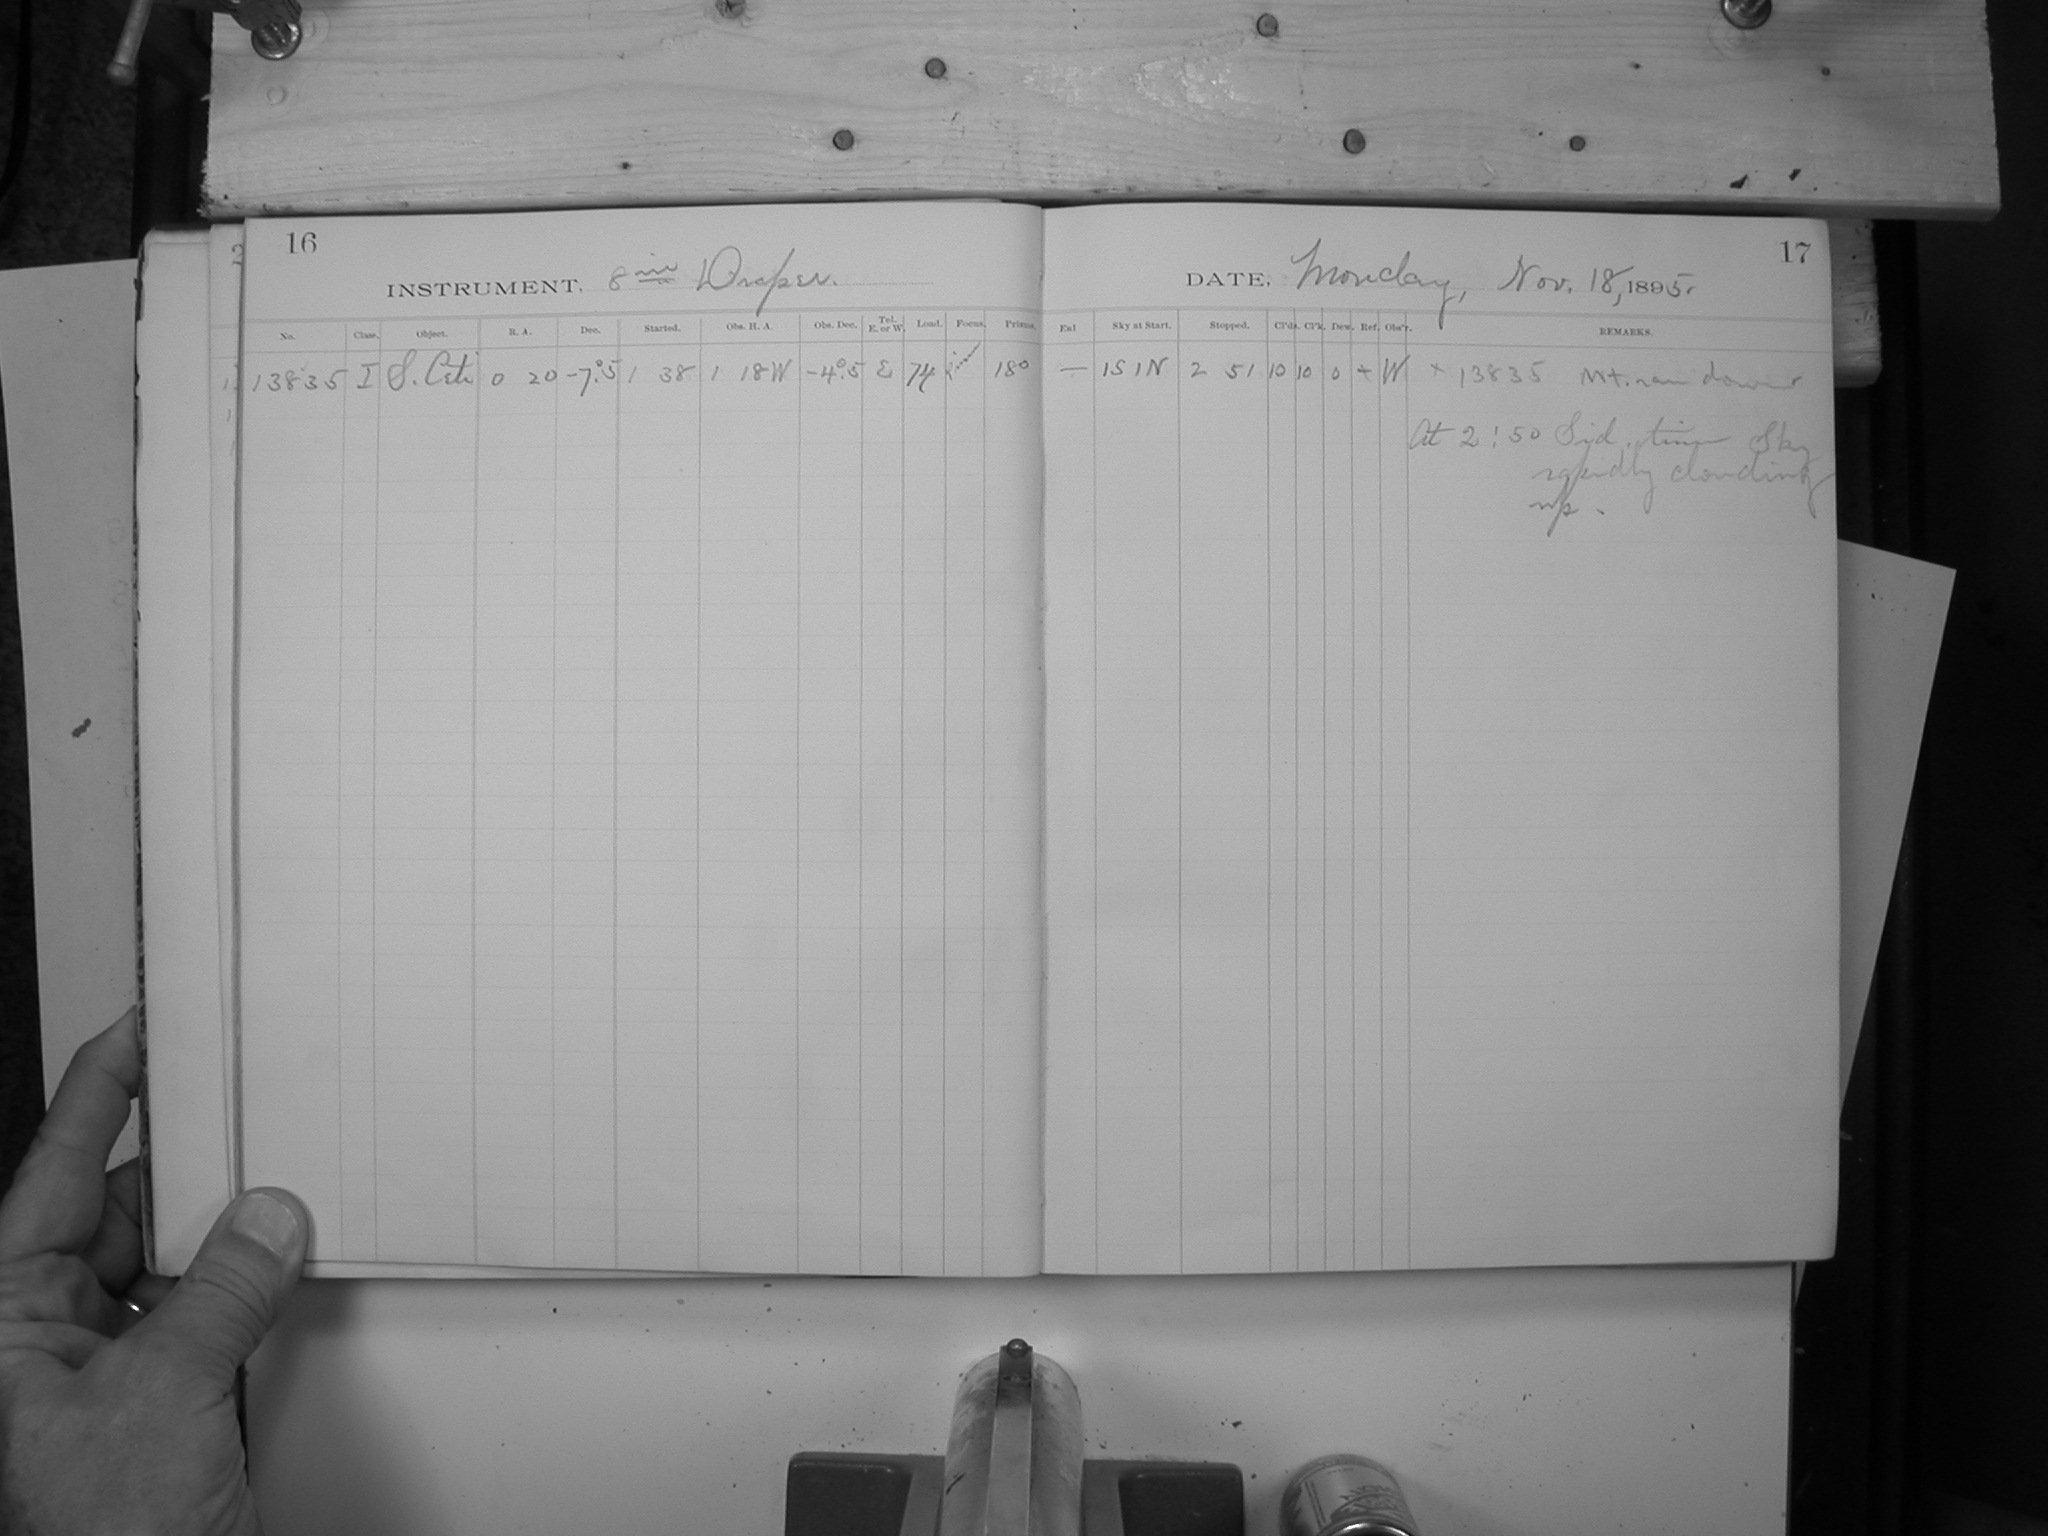 16
INSTRUMENT, 8 in Draper.
No. Class. Object. R. A. Dec. Started. Obs. H. A. Obs. Dec. Tel. E. or W. Load. Focus. Prisms.
13835 I S. Ceti 0 20 -7.°5 1 38 1 18W -4.°5 E 74 180
17
DATE, Monday, Nov. 18, 1895.
Enl Sky at Start. Stopped. Cl'ds. Cl'k. Dew. Ref. Obs'r. REMARKS.
— 1S 1N 2 51 10 10 0 + W × 13835 Mt. ran down
At 2:50 Sid. time Sky
rapidly clouding
up.